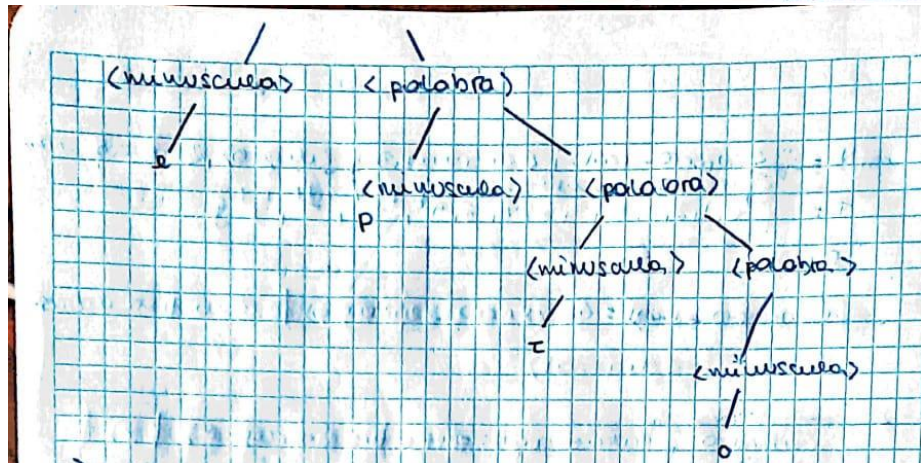 <minuscula> <palabra>
e
<minuscula> <palabra>
p
<minuscula> <palabra>
t
<minuscula>
o